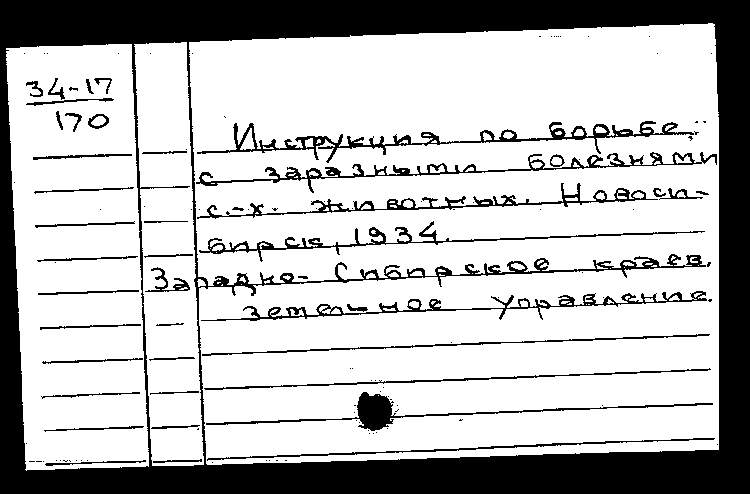 34-17
170
Инструкция по борьбе
с заразными болезнями
с.-х. животных. Новоси-
бирск, 1934.
Западно-Сибирское краев.
земельное управление.